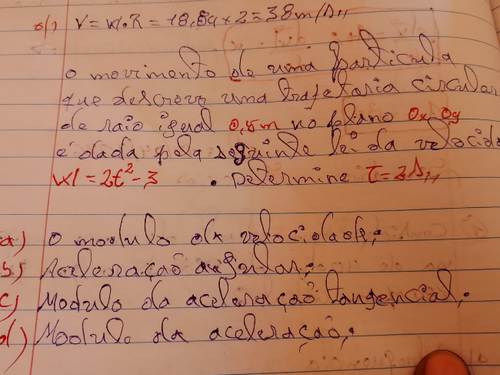 d) V = W.R = 18,84 x 2 = 38 m/s,,
O movimento de uma particula
que descreve uma trajetoria circular
de raio igual 0,5m no plano 0x 0y
é dada pela seguinte lei da velocida
W = 2t² - 3 . Determine t = 2s,,
a) O modulo da velocidade;
b) Aceleração angular;
c) Modulo da aceleração tangencial;
d) Modulo da aceleração;